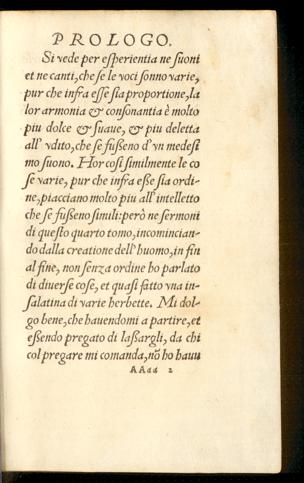 PROLOGO.
Si vede per esperientia ne suoni
et ne canti, che se le voci sonno varie,
pur che infra esse sia proportione, la
lor armonia & consonantia è molto
piu dolce & suaue, & piu deletta
all' vdito, che se fußeno d'vn medesi
mo suono. Hor cosi similmente le co
se varie, pur che infra eße sia ordi-
ne, piacciano molto piu all' intelletto
che se fußeno simili: però ne sermoni
di questo quarto tomo, incomincian-
do dalla creatione dell' huomo, in fin
al fine, non senza ordine ho parlato
di diuerse cose, et quasi fatto vna in-
salatina di varie herbette. Mi dol-
go bene, che hauendomi a partire, et
eßendo pregato di laßargli, da chi
col pregare mi comanda, nō ho hauu
AAdd 2